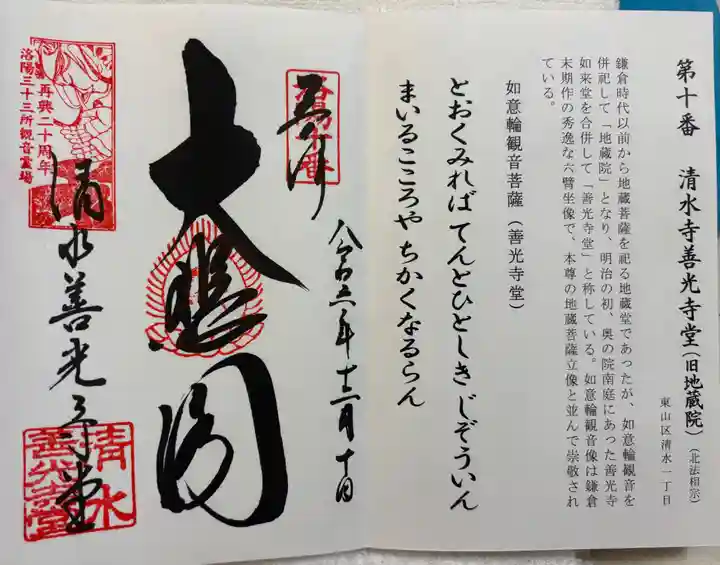 第十番 清水寺善光寺堂(旧地蔵院)(北法相宗)
東山区清水一丁目
鎌倉時代以前から地蔵菩薩を祀る地蔵堂であったが、如意輪観音を
併祀して「地蔵院」となり、明治の初、奥の院南庭にあった善光寺
如来堂を合併して「善光寺堂」と称している。如意輪観音像は鎌倉
末期作の秀逸な六臂坐像で、本尊の地蔵菩薩立像と並んで崇敬され
ている。
如意輪観音菩薩(善光寺堂)
とおくみれば てんとひとしき じぞういん
まいるこころや ちかくなるらん
奉拝
洛陽十番
大悲閣
清水善光寺堂
再興二十周年
洛陽三十三所観音霊場
清水
善光寺堂